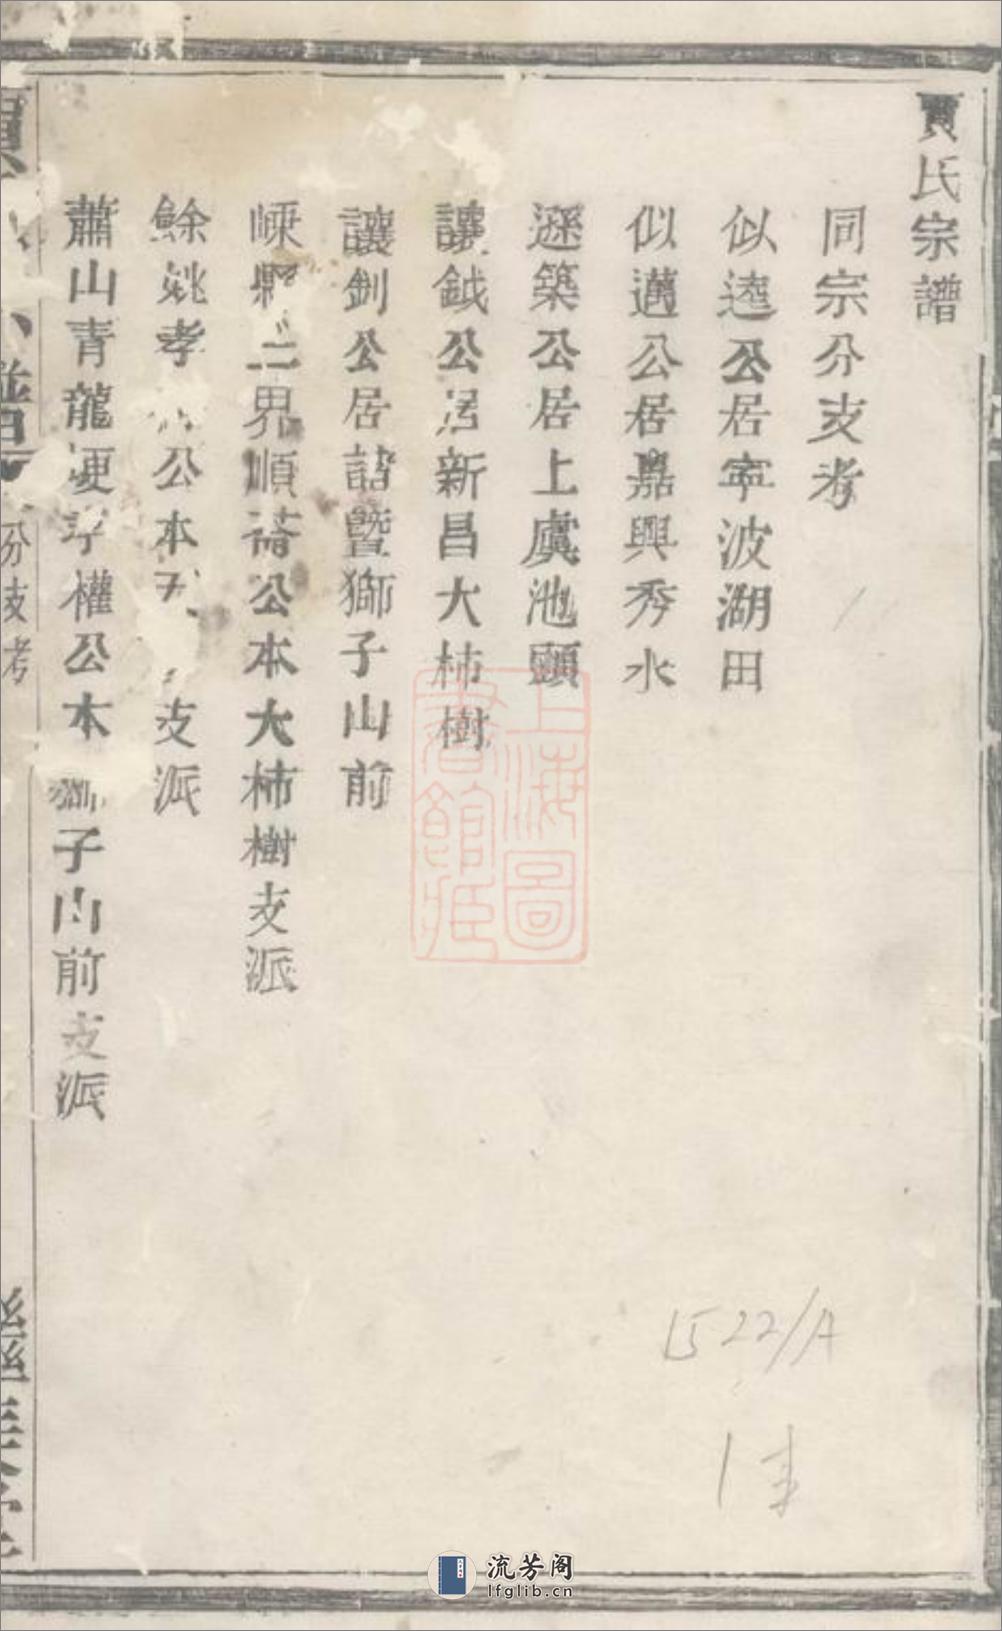 賈氏宗譜
同宗分支考
似逵公居寧波湖田
似邁公居嘉興秀水
遜築公居上虞池頭
讓鉞公居新昌大柿樹
讓釗公居諸暨獅子山前
嵊縣二界順齋公本大柿樹支派
餘姚孝公本支派
蕭山青龍埂孚權公本獅子山前支派
分支考
上海圖書館藏
1522/A
流芳阁
lfglib.cn